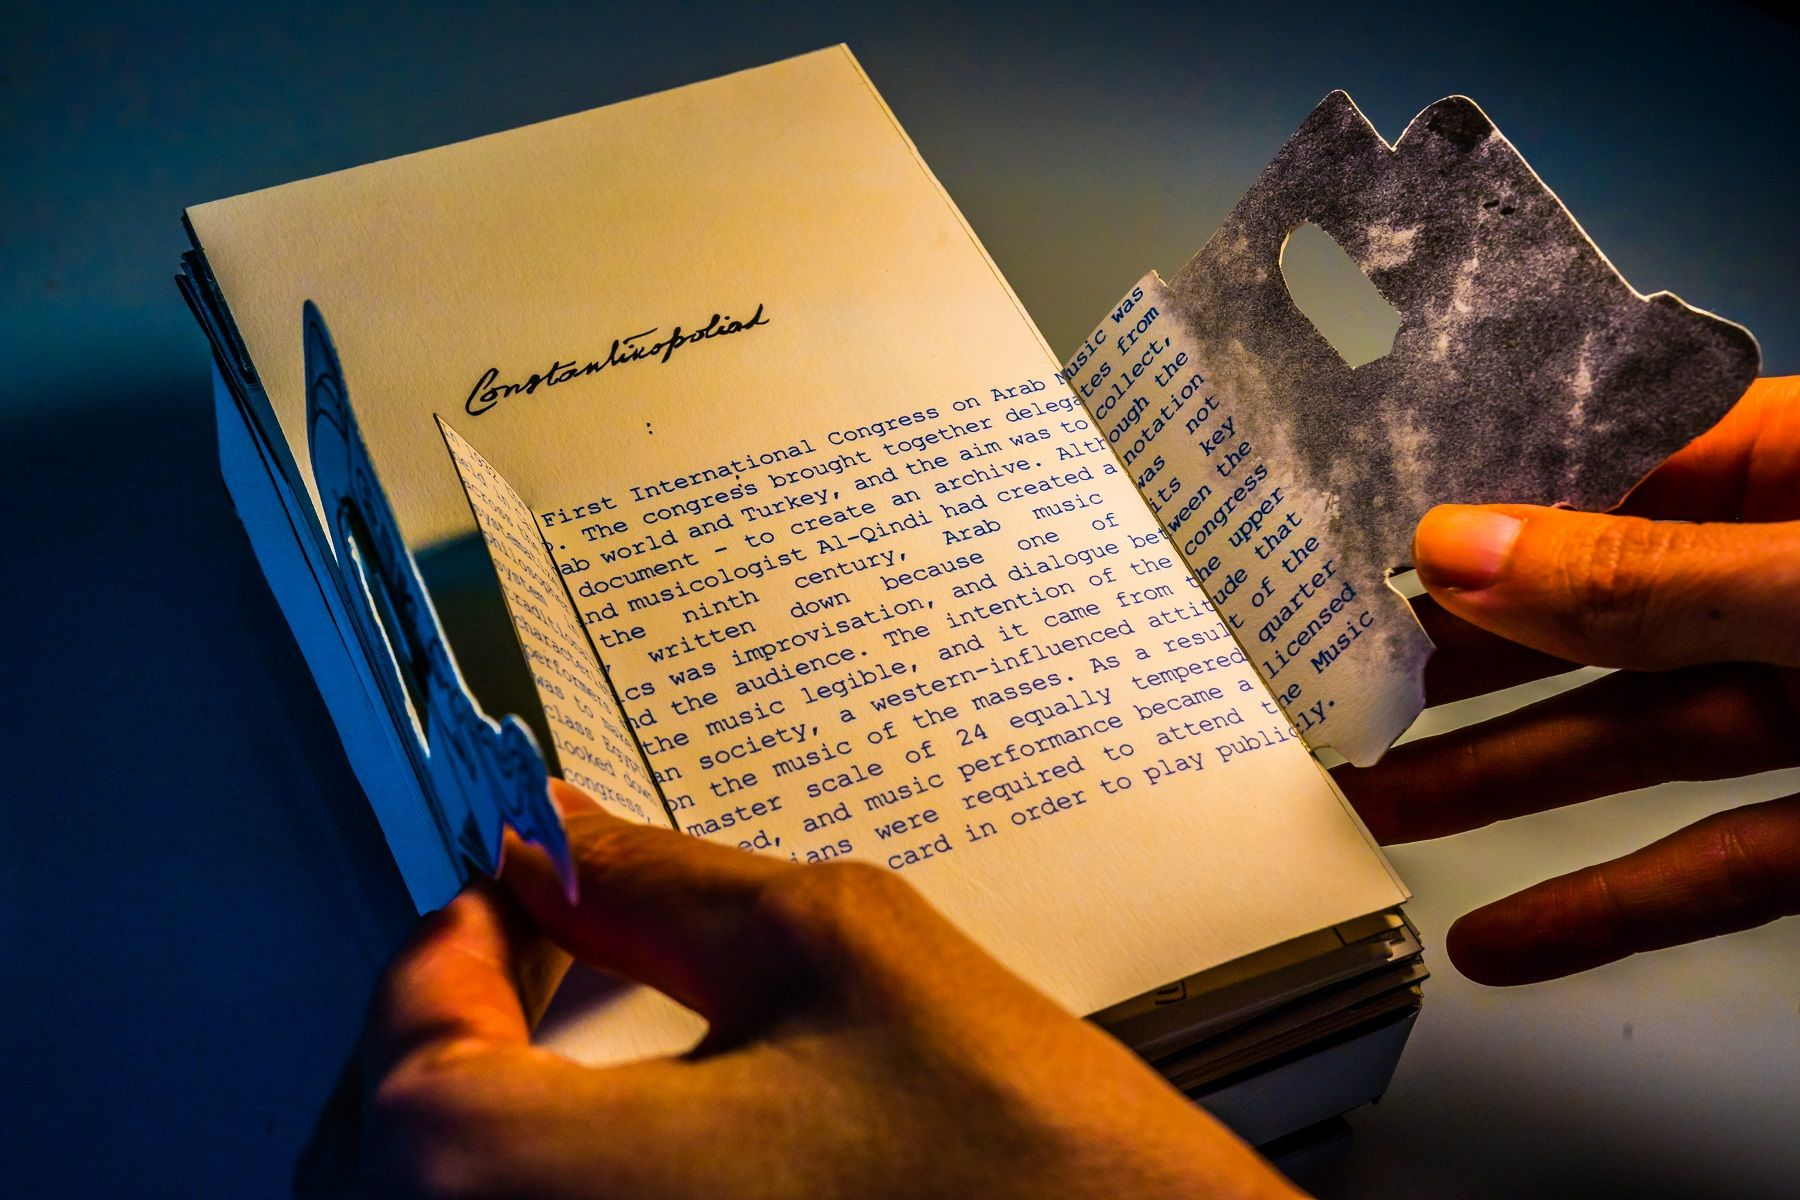 Constantinopoliad
:
First International Congress on Arab Music was
The congress brought together delegates from
across the Arab world and Turkey, and the aim was to collect,
document - to create an archive. Although the
philosopher and musicologist Al-Qindi had created a notation
system in the ninth century, Arab music was not
traditionally written down because one of its key
characteristics was improvisation, and dialogue between the
performers and the audience. The intention of the congress
was to make the music legible, and it came from the upper
class Egyptian society, a western-influenced attitude that
looked down on the music of the masses. As a result of the
congress, master scale of 24 equally tempered quarter
ed, and music performance became a licensed
ians were required to attend the Music
card in order to play publicly.